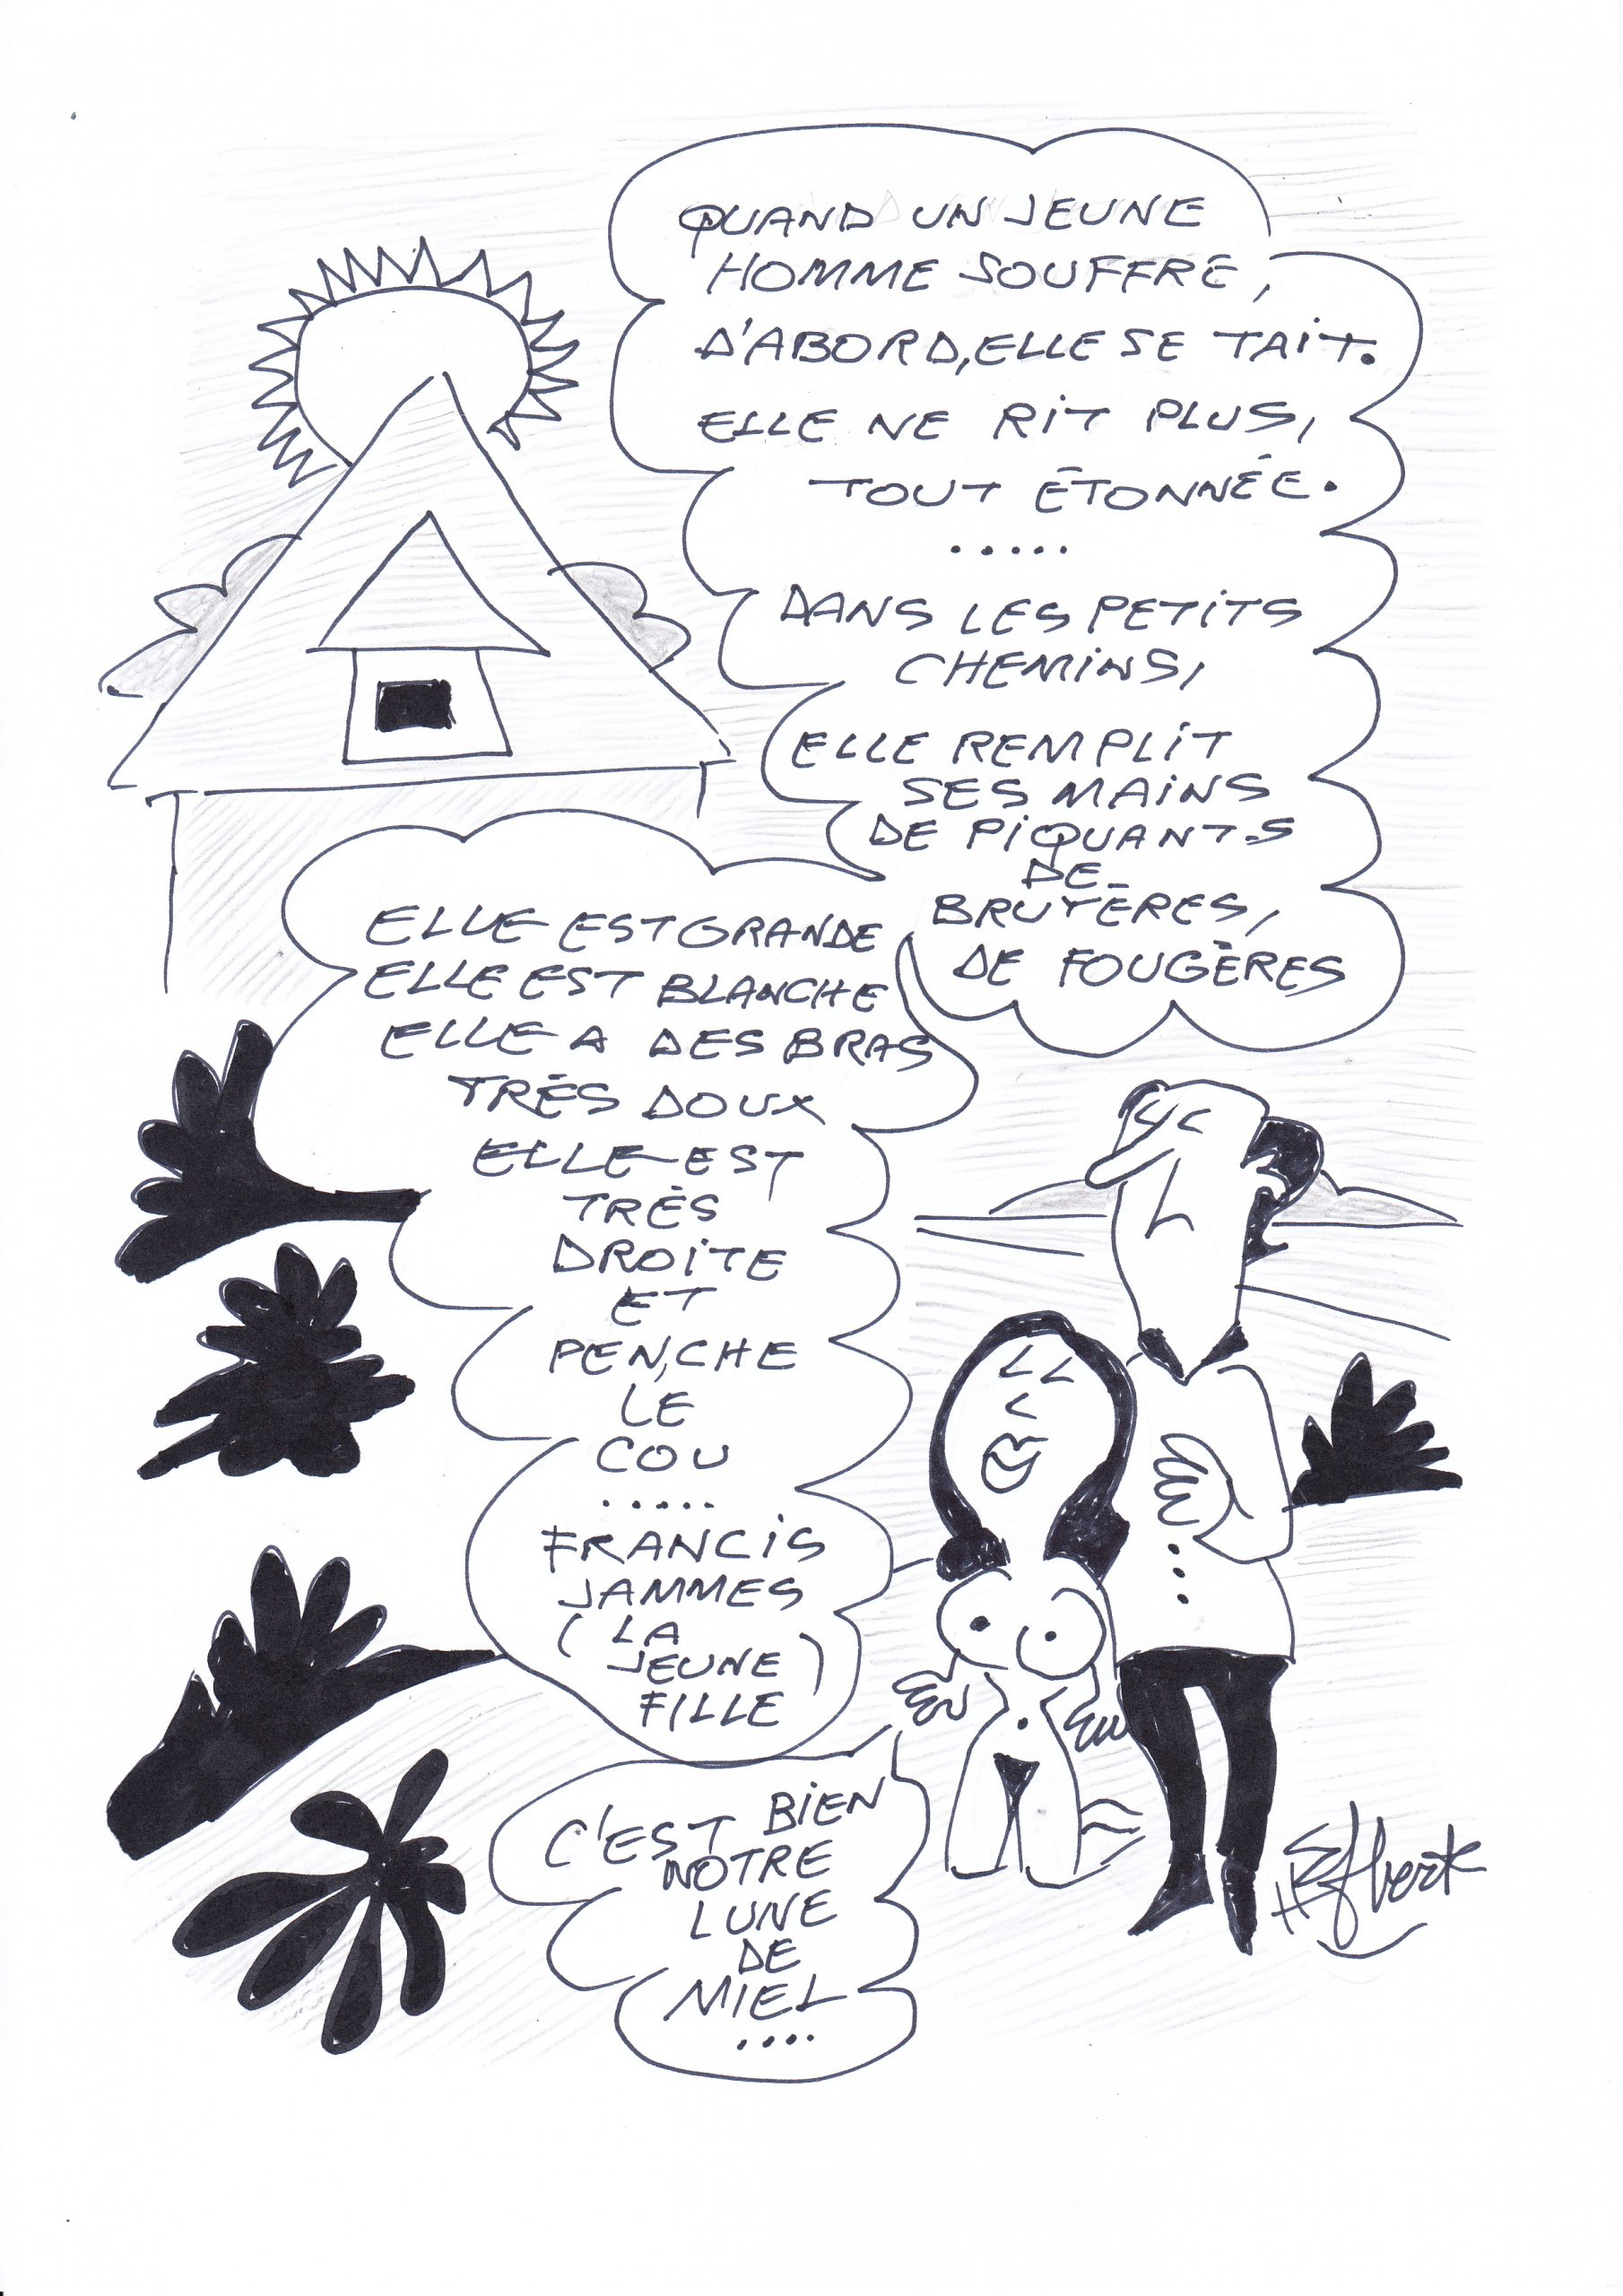 QUAND UN JEUNE
HOMME SOUFFRE,
D'ABORD, ELLE SE TAIT.
ELLE NE RIT PLUS,
TOUT ÉTONNÉE.
.....
DANS LES PETITS
CHEMINS,
ELLE REMPLIT
SES MAINS
DE PIQUANTS
DE
BRUYÈRES,
DE FOUGÈRES
ELLE EST GRANDE
ELLE EST BLANCHE
ELLE A DES BRAS
TRÈS DOUX
ELLE EST
TRÈS
DROITE
ET
PENCHE
LE
COU
.....
FRANCIS
JAMMES
(LA
JEUNE
FILLE)
C'EST BIEN
NOTRE
LUNE
DE
MIEL
....